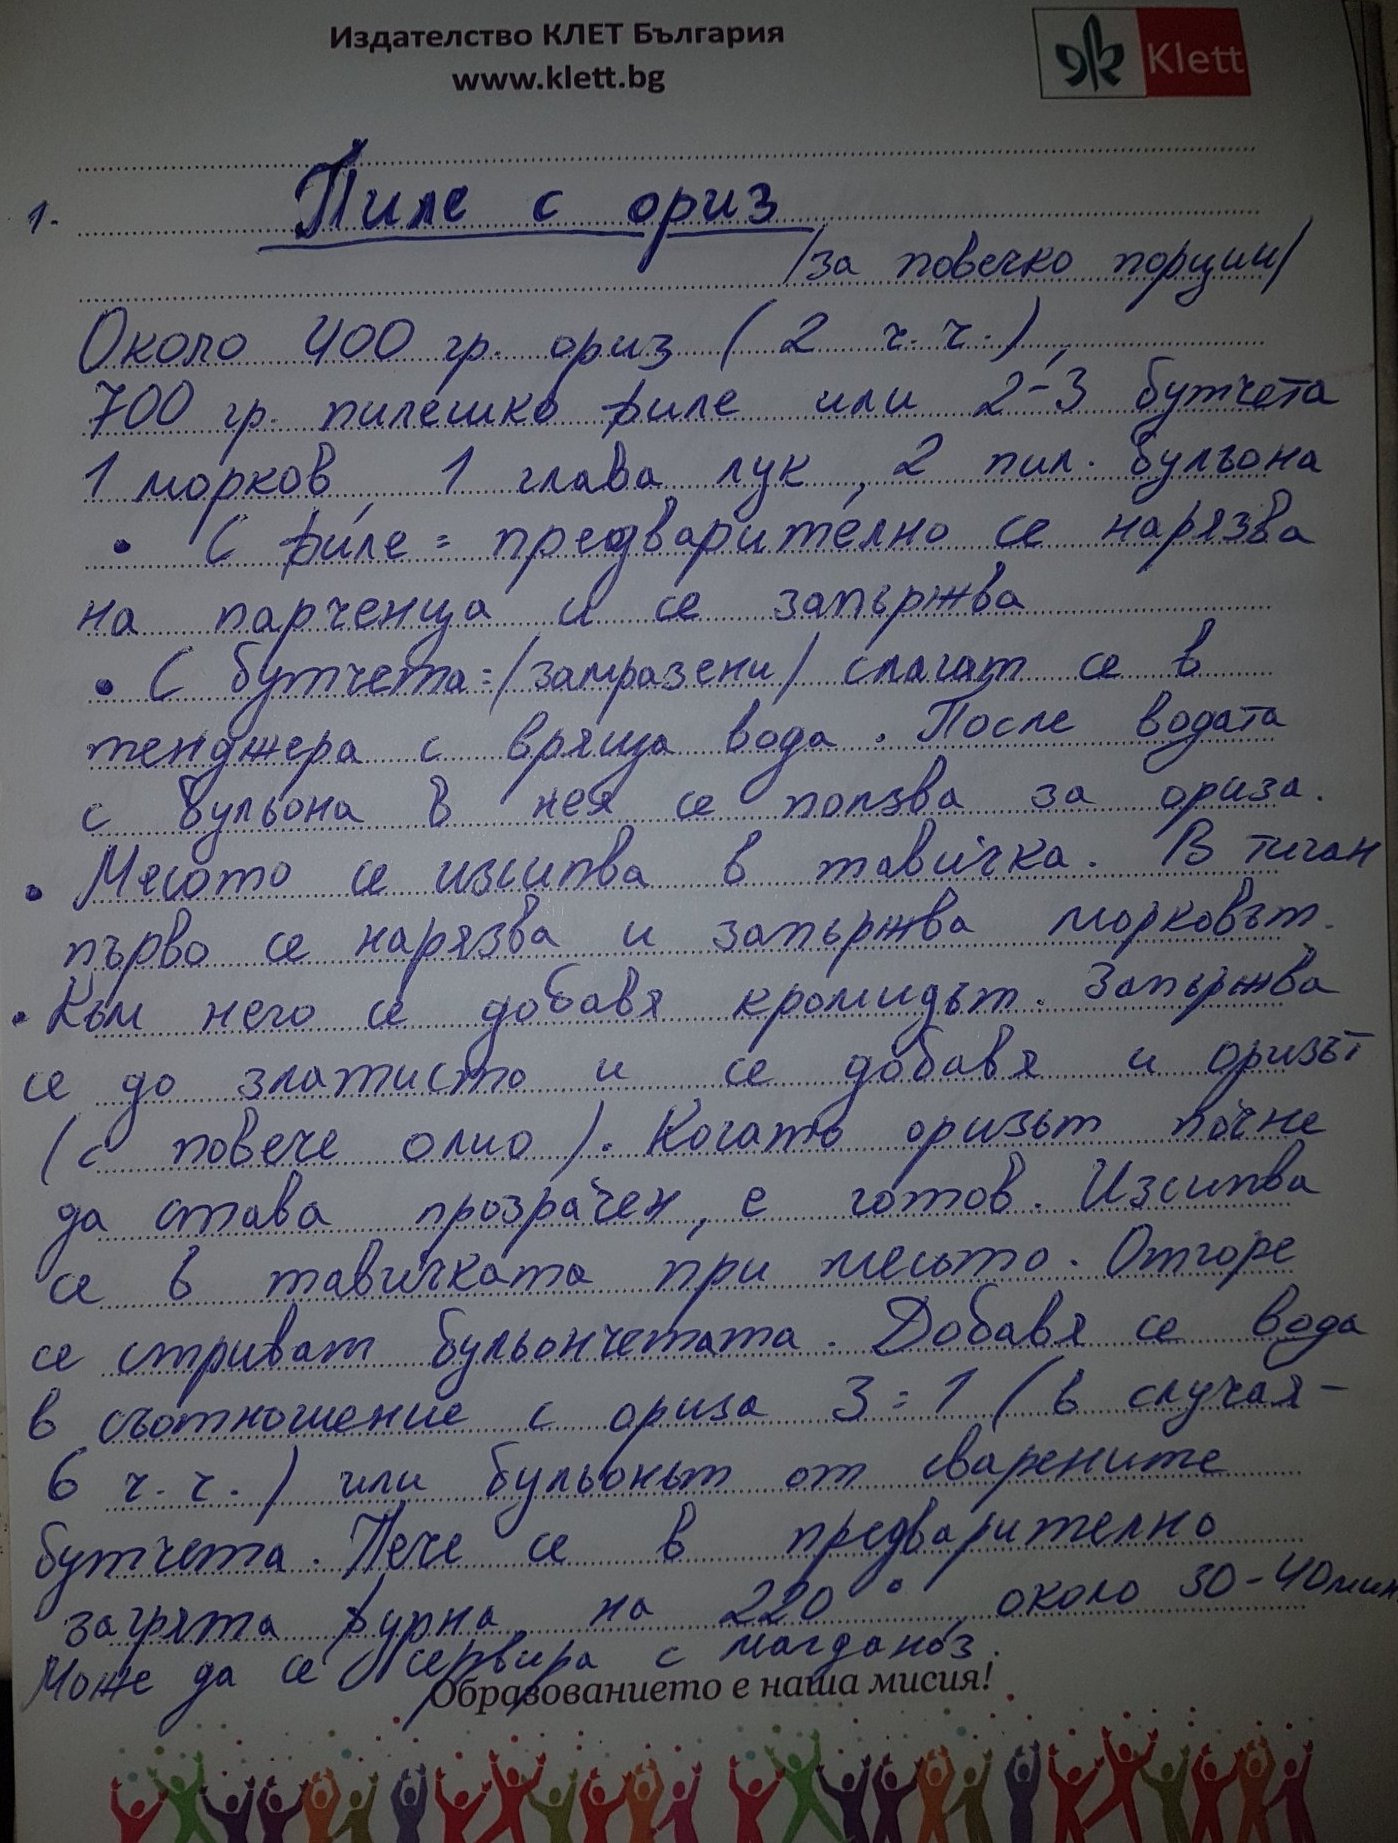 Издателство КЛЕТ България
www.klett.bg
Klett
1. Пиле с ориз
/за повечко порции/
Около 400 гр. ориз (2 ч.ч.),
700 гр. пилешко филе или 2-3 бутчета
1 морков, 1 глава лук, 2 пил. бульона
• С филе = предварително се нарязва
на парченца и се запържва
• С бутчета = /замразени/ слагат се в
тенджера с вряща вода. После водата
с бульона в нея се ползва за ориза.
• Месото се изсипва в тавичка. В тиган
първо се нарязва и запържва морковът.
• Към него се добавя кромидът. Запържва
се до златисто и се добавя и оризът
(с повече олио). Когато оризът почне
да става прозрачен, е готов. Изсипва
се в тавичката при месото. Отгоре
се стриват бульончетата. Добавя се вода
в съотношение с ориза 3:1 (в случая -
6 ч.ч.) или бульонът от сварените
бутчета. Пече се в предварително
загрята фурна на 220°, около 30-40мин
Може да се сервира с магданоз.
Образованието е наша мисия!